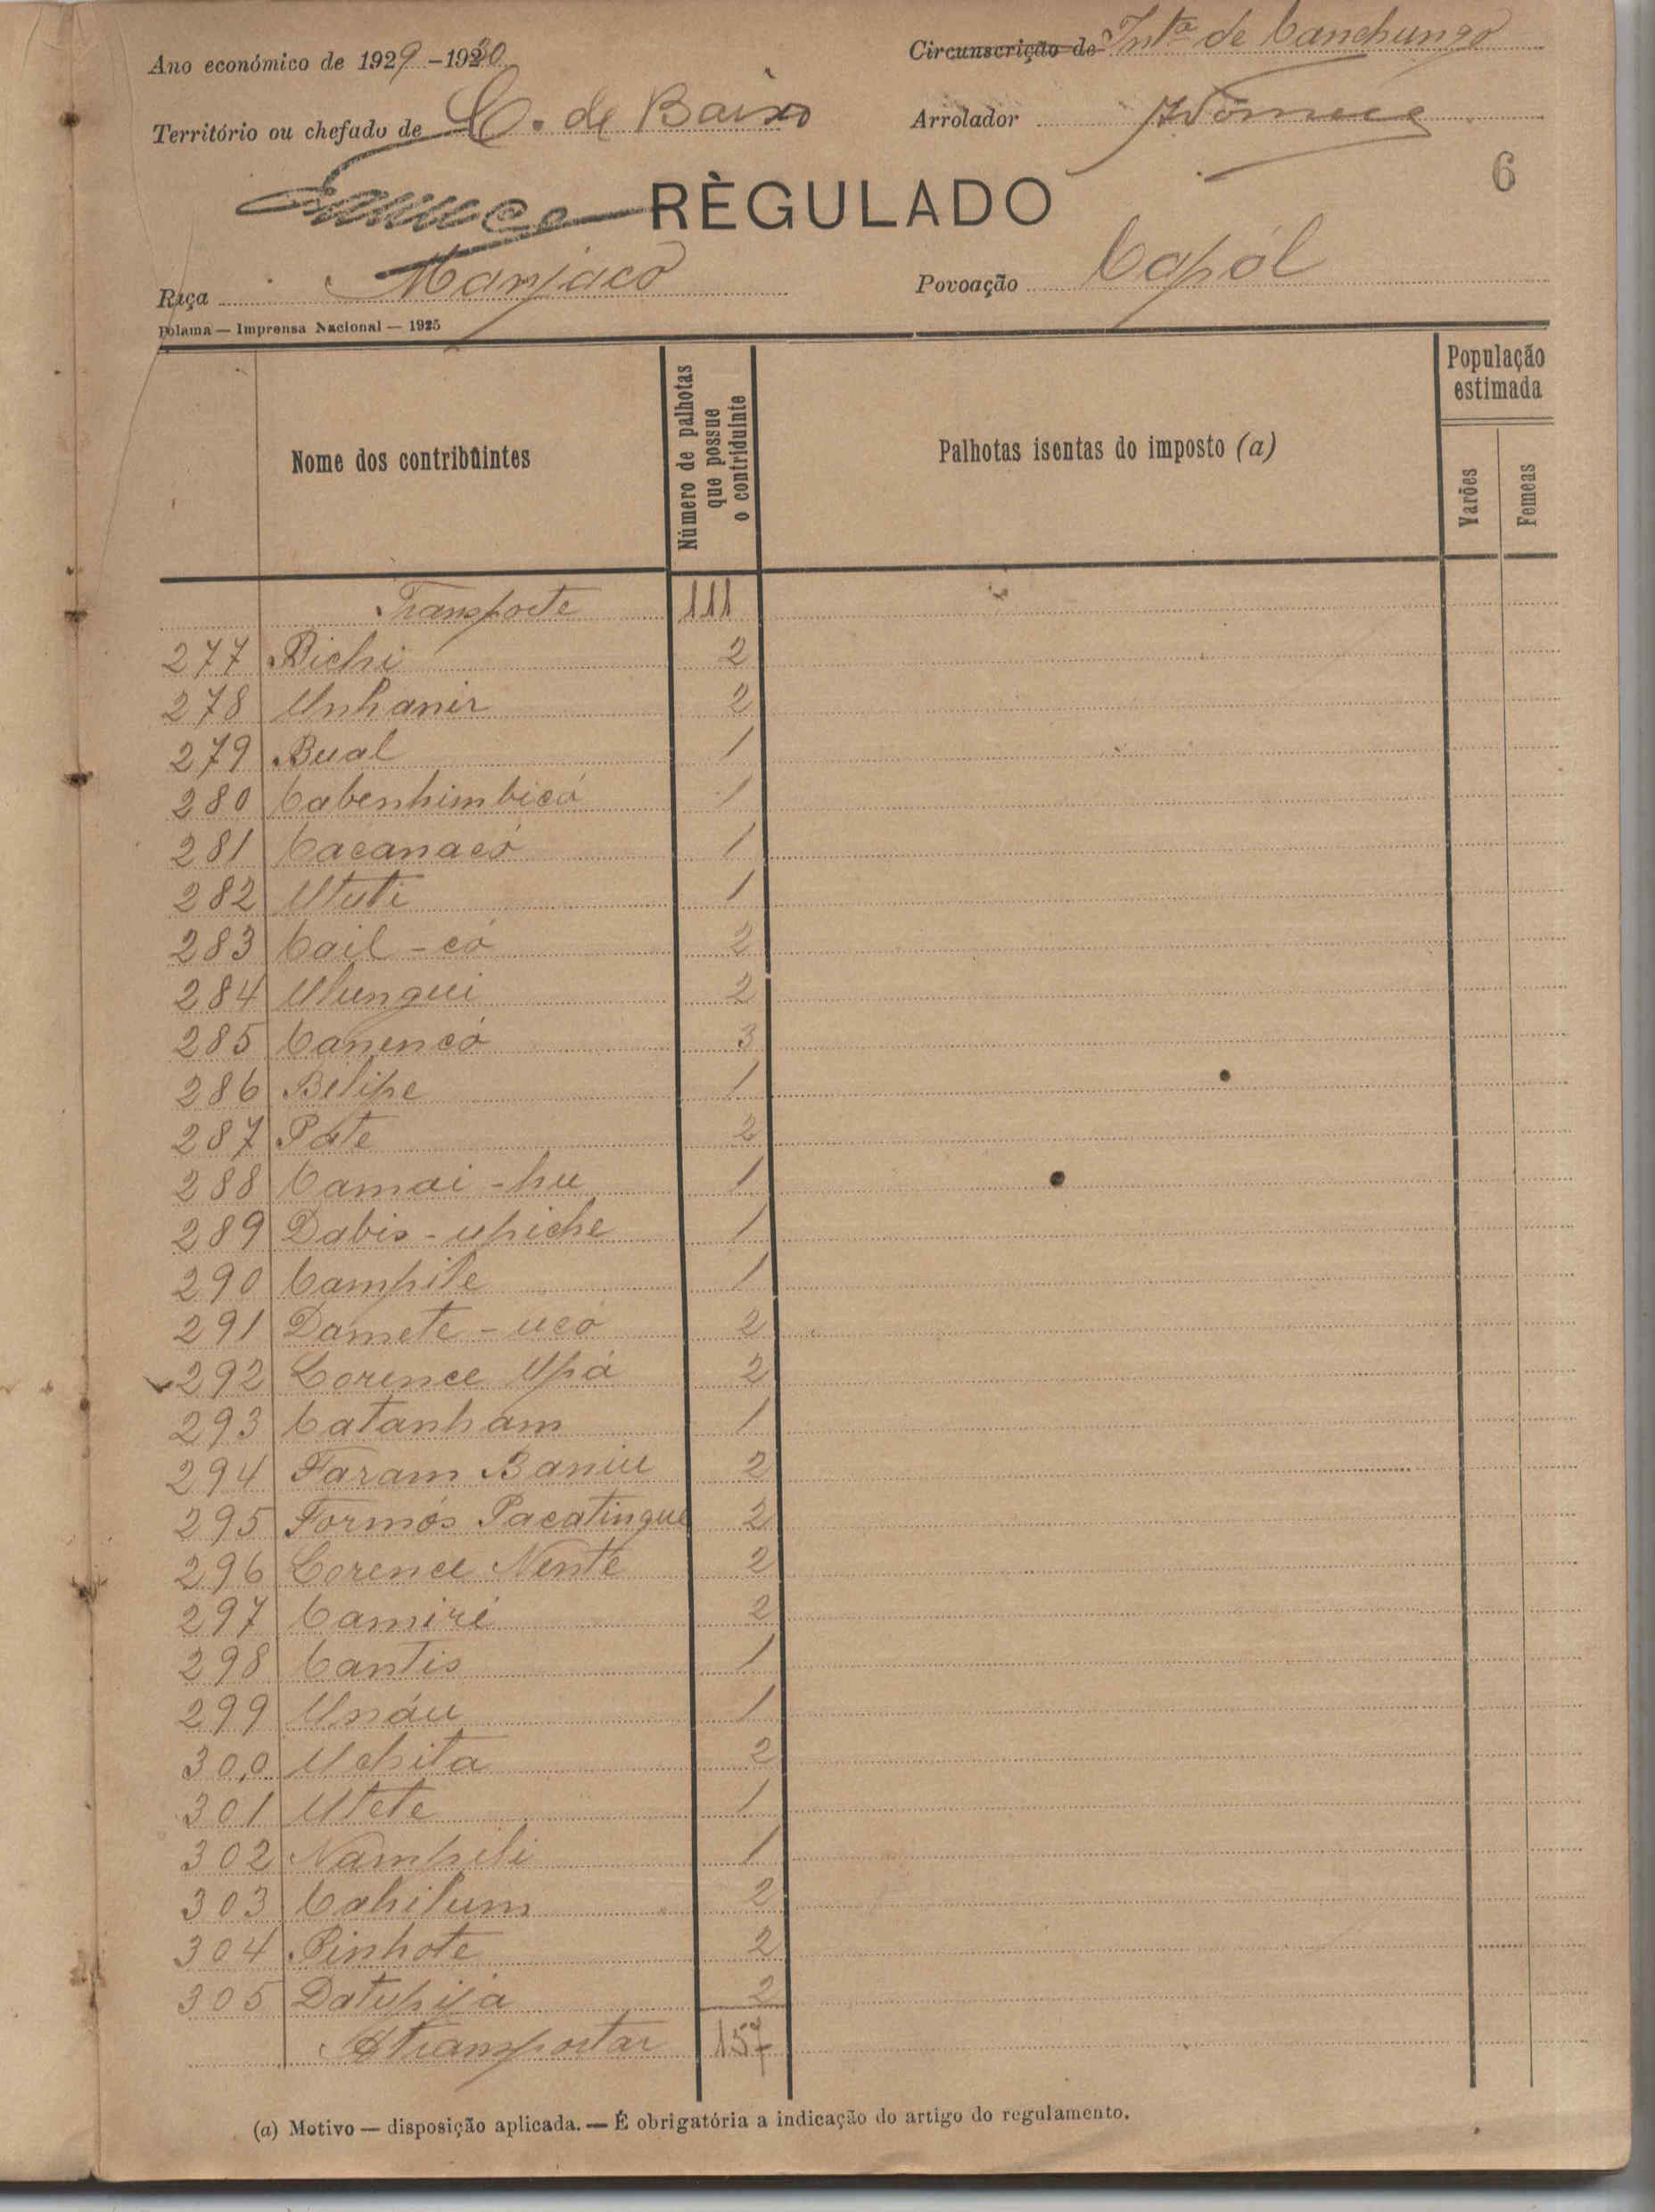 Ano económico de 1929-1930
Circunscrição de Int.ª de Canchungo
Território ou chefado de C. de Baixo
Arrolador
6
RÈGULADO
Raça Manjaco
Povoação Capól
Bolama — Imprensa Nacional — 1925
Nome dos contribùintes
Número de palhotas que possue o contriduinte
Palhotas isentas do imposto (a)
População estimada
Varões
Femeas
Transporte 111
277 Bichi 2
278 Unhanir 2
279 Bual 1
280 Cabenhimbicó 1
281 Cacanacó 1
282 Ututi 1
283 Cail-có 2
284 Ulungui 2
285 Canencó 3
286 Bilipe 1
287 Pate 2
288 Camai-hu 1
289 Dabis-upiche 1
290 Campile 1
291 Damete-ucó 2
292 Lorence Upá 2
293 Catanham 1
294 Faram Baniu 2
295 Formós Pacatingue 2
296 Lorence Nente 2
297 Camiré 2
298 Cantis 1
299 Unáu 1
300 Uchita 2
301 Utete 1
302 Nampili 1
303 Cahilum 2
304 Pinhote 2
305 Datupijá 2
A transportar 157
(a) Motivo — disposição aplicada. — É obrigatória a indicação do artigo do regulamento.